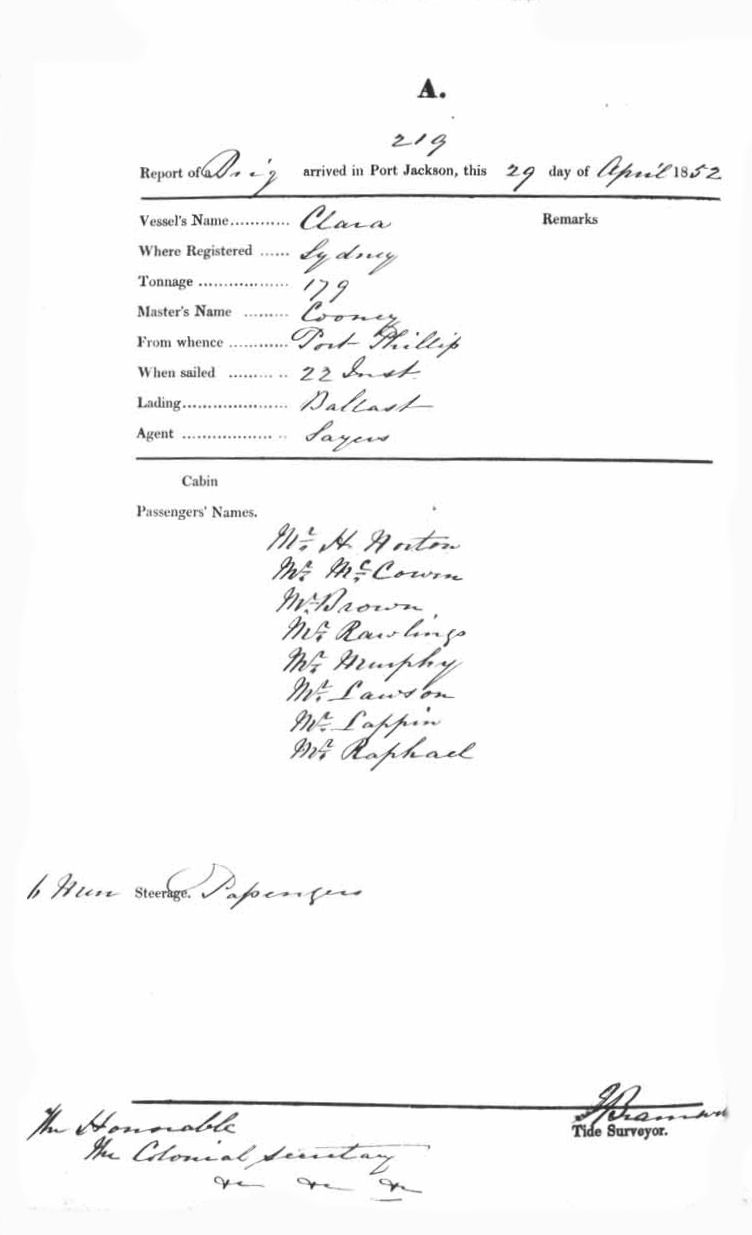 A.
219
Report of a Brig arrived in Port Jackson, this 29 day of April 1852
Vessel's Name............ Clara Remarks
Where Registered ...... Sydney
Tonnage .................. 179
Master's Name ......... Cooney
From whence ............ Port Phillip
When sailed ......... .. 22 Inst.
Lading..................... Ballast
Agent .................. .. Sayers
Cabin
Passengers' Names.
Mr. H. Norton
Mr. McCowen
Mr. Brown
Mr. Rawlings
Mr. Murphy
Mr. Lawson
Mr. Lappin
Mr. Raphael
6 Men Steerage. Passengers
The Honorable
Tide Surveyor.
The Colonial Secretary
&c &c &c